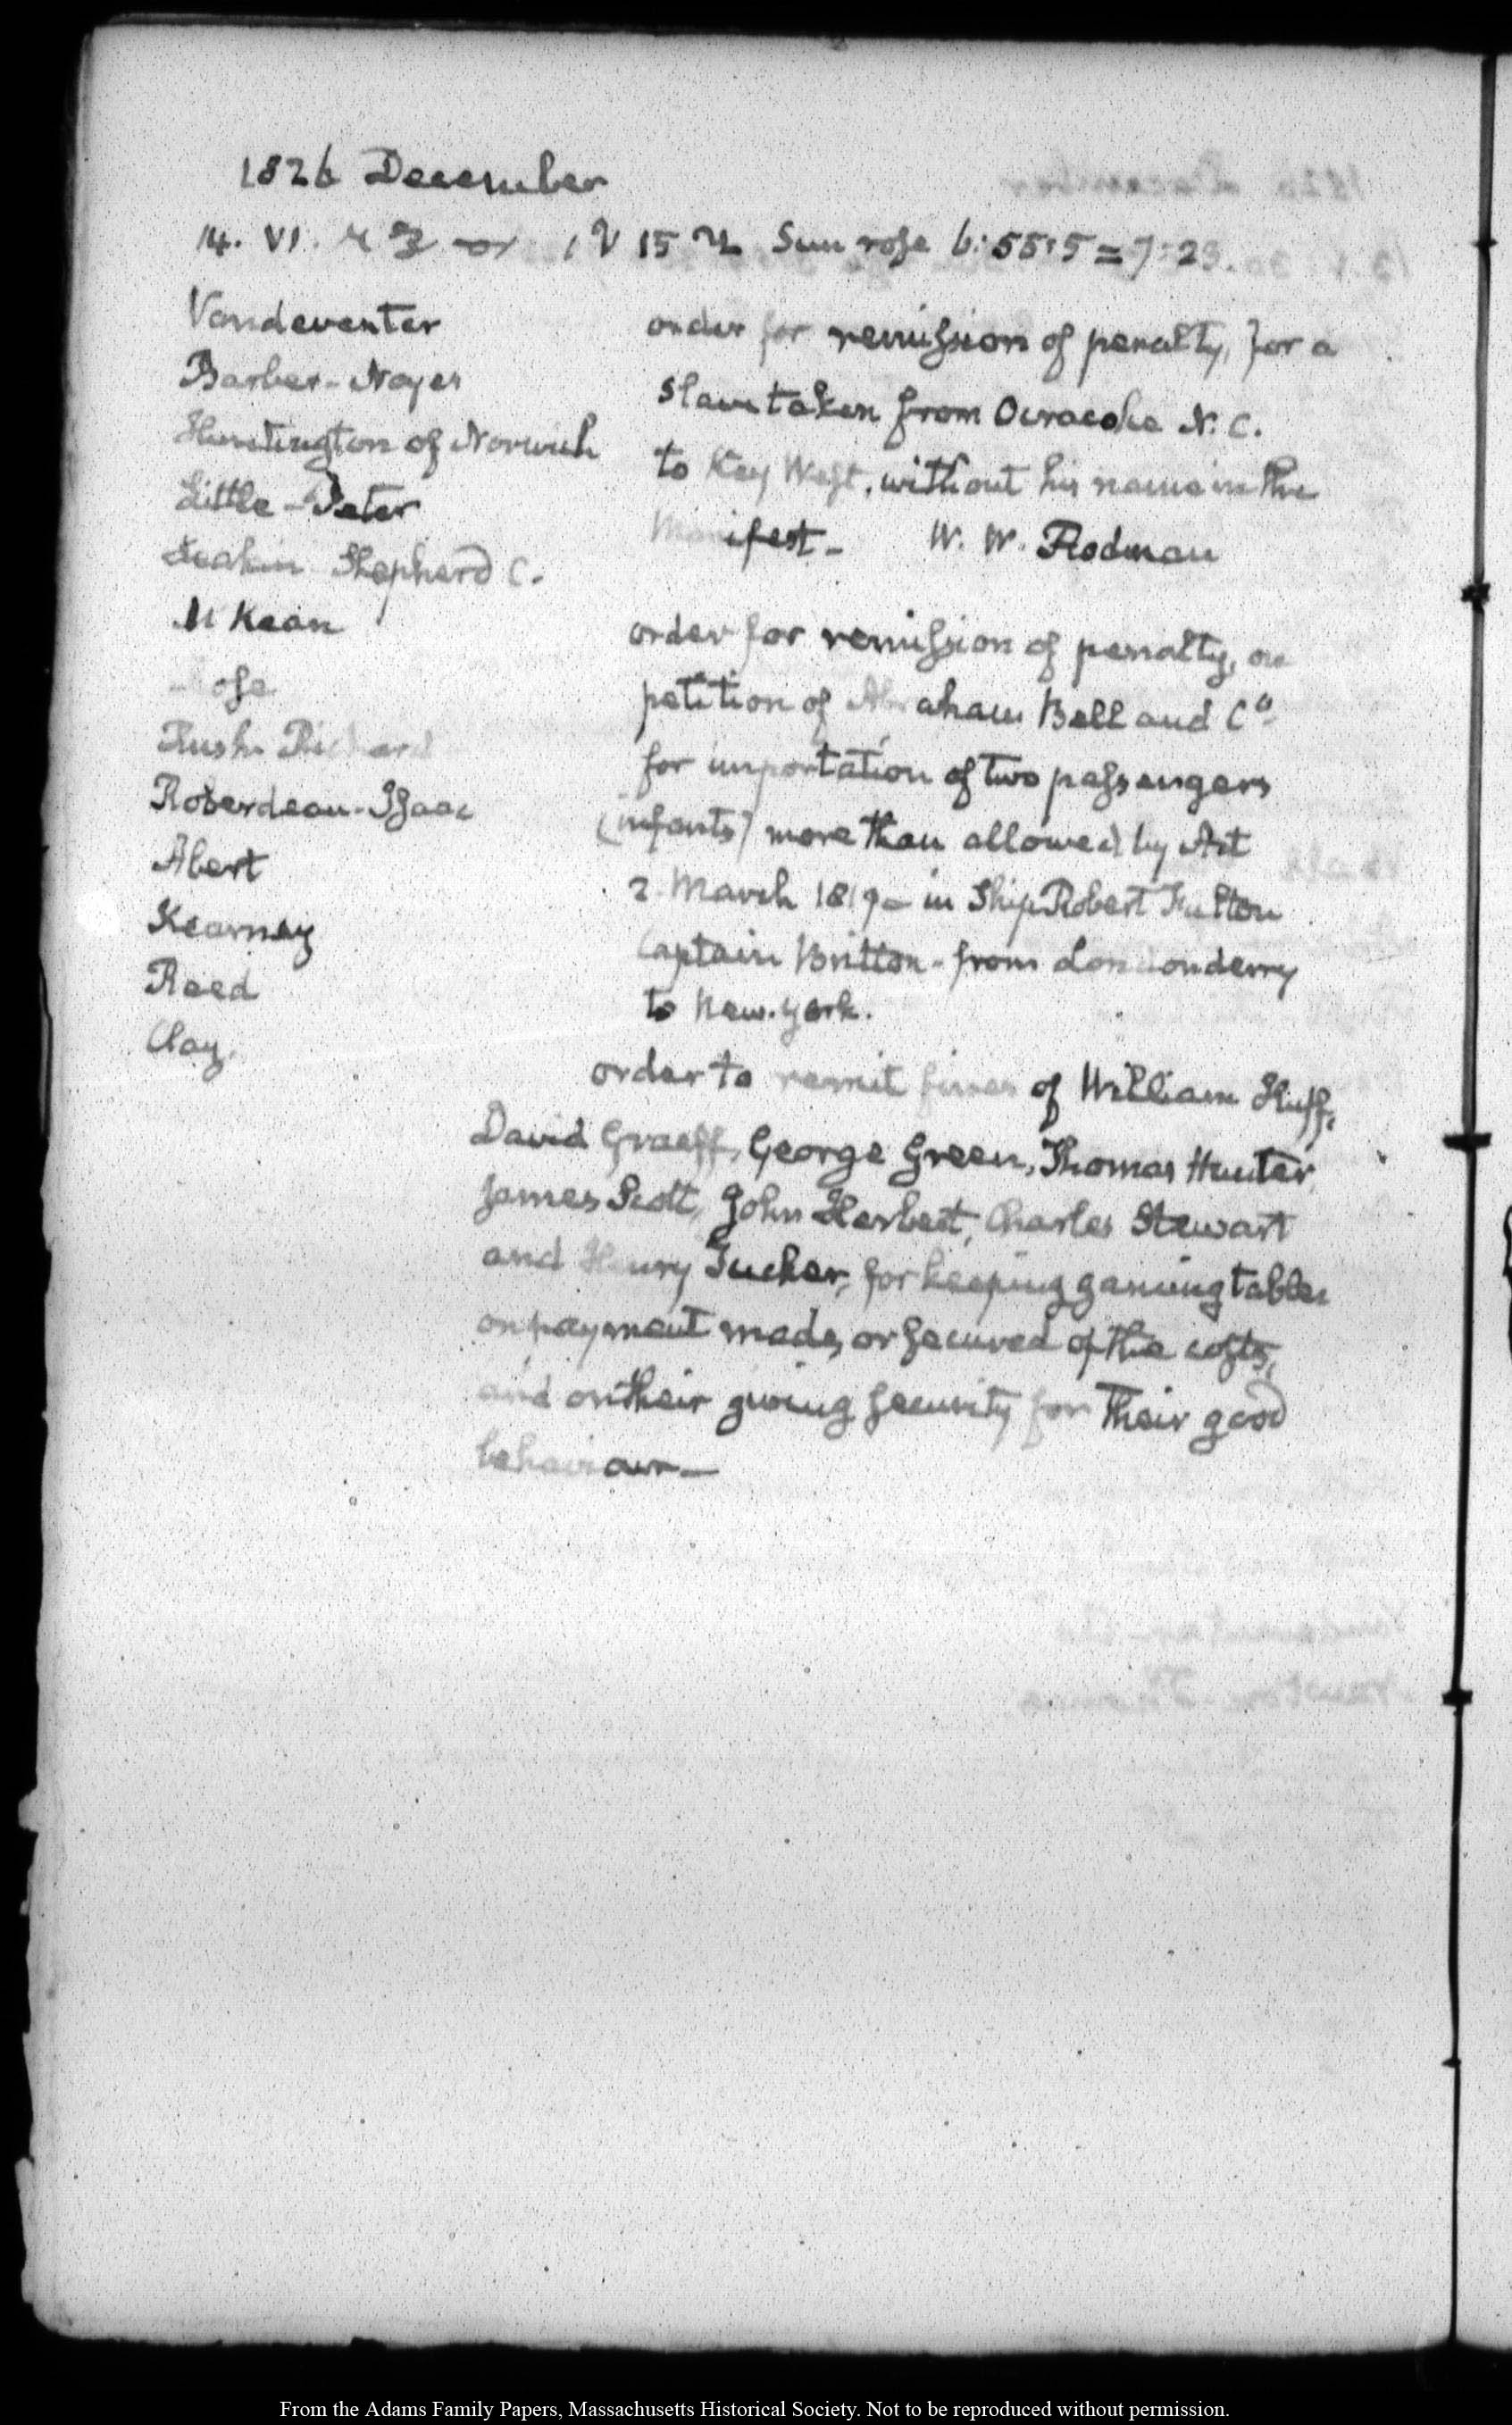 1826 December
14. VI. 15 Sun rose 6:55:5 = 7:23.
Vandeventer
Barber-Noyes
Huntington of Norwich
Little-Peter
Leakin Shepherd C.
McKean
Rush Richard
Roberdeau-Isaac
Abert
Kearney
Reed
Clay.
order for remission of penalty, for a
slave taken from Ocracoke N. C.
to Key West, without his name in the
Manifest- W. W. Rodman
order for remission of penalty, on
petition of Abraham Bell and Co.
for importation of two passengers
(infants) more than allowed by Act
2 March 1819- in Ship Robert Fulton
Captain Britton- from Londonderry
to New-York.
order to remit fines of William Huff,
David Graeff, George Green, Thomas Hunter,
James Scott, John Herbert, Charles Stewart
and Henry Tucker, for keeping gaming tables
on payment made, or secured of the costs,
and on their giving security for their good
behaviour—
From the Adams Family Papers, Massachusetts Historical Society. Not to be reproduced without permission.